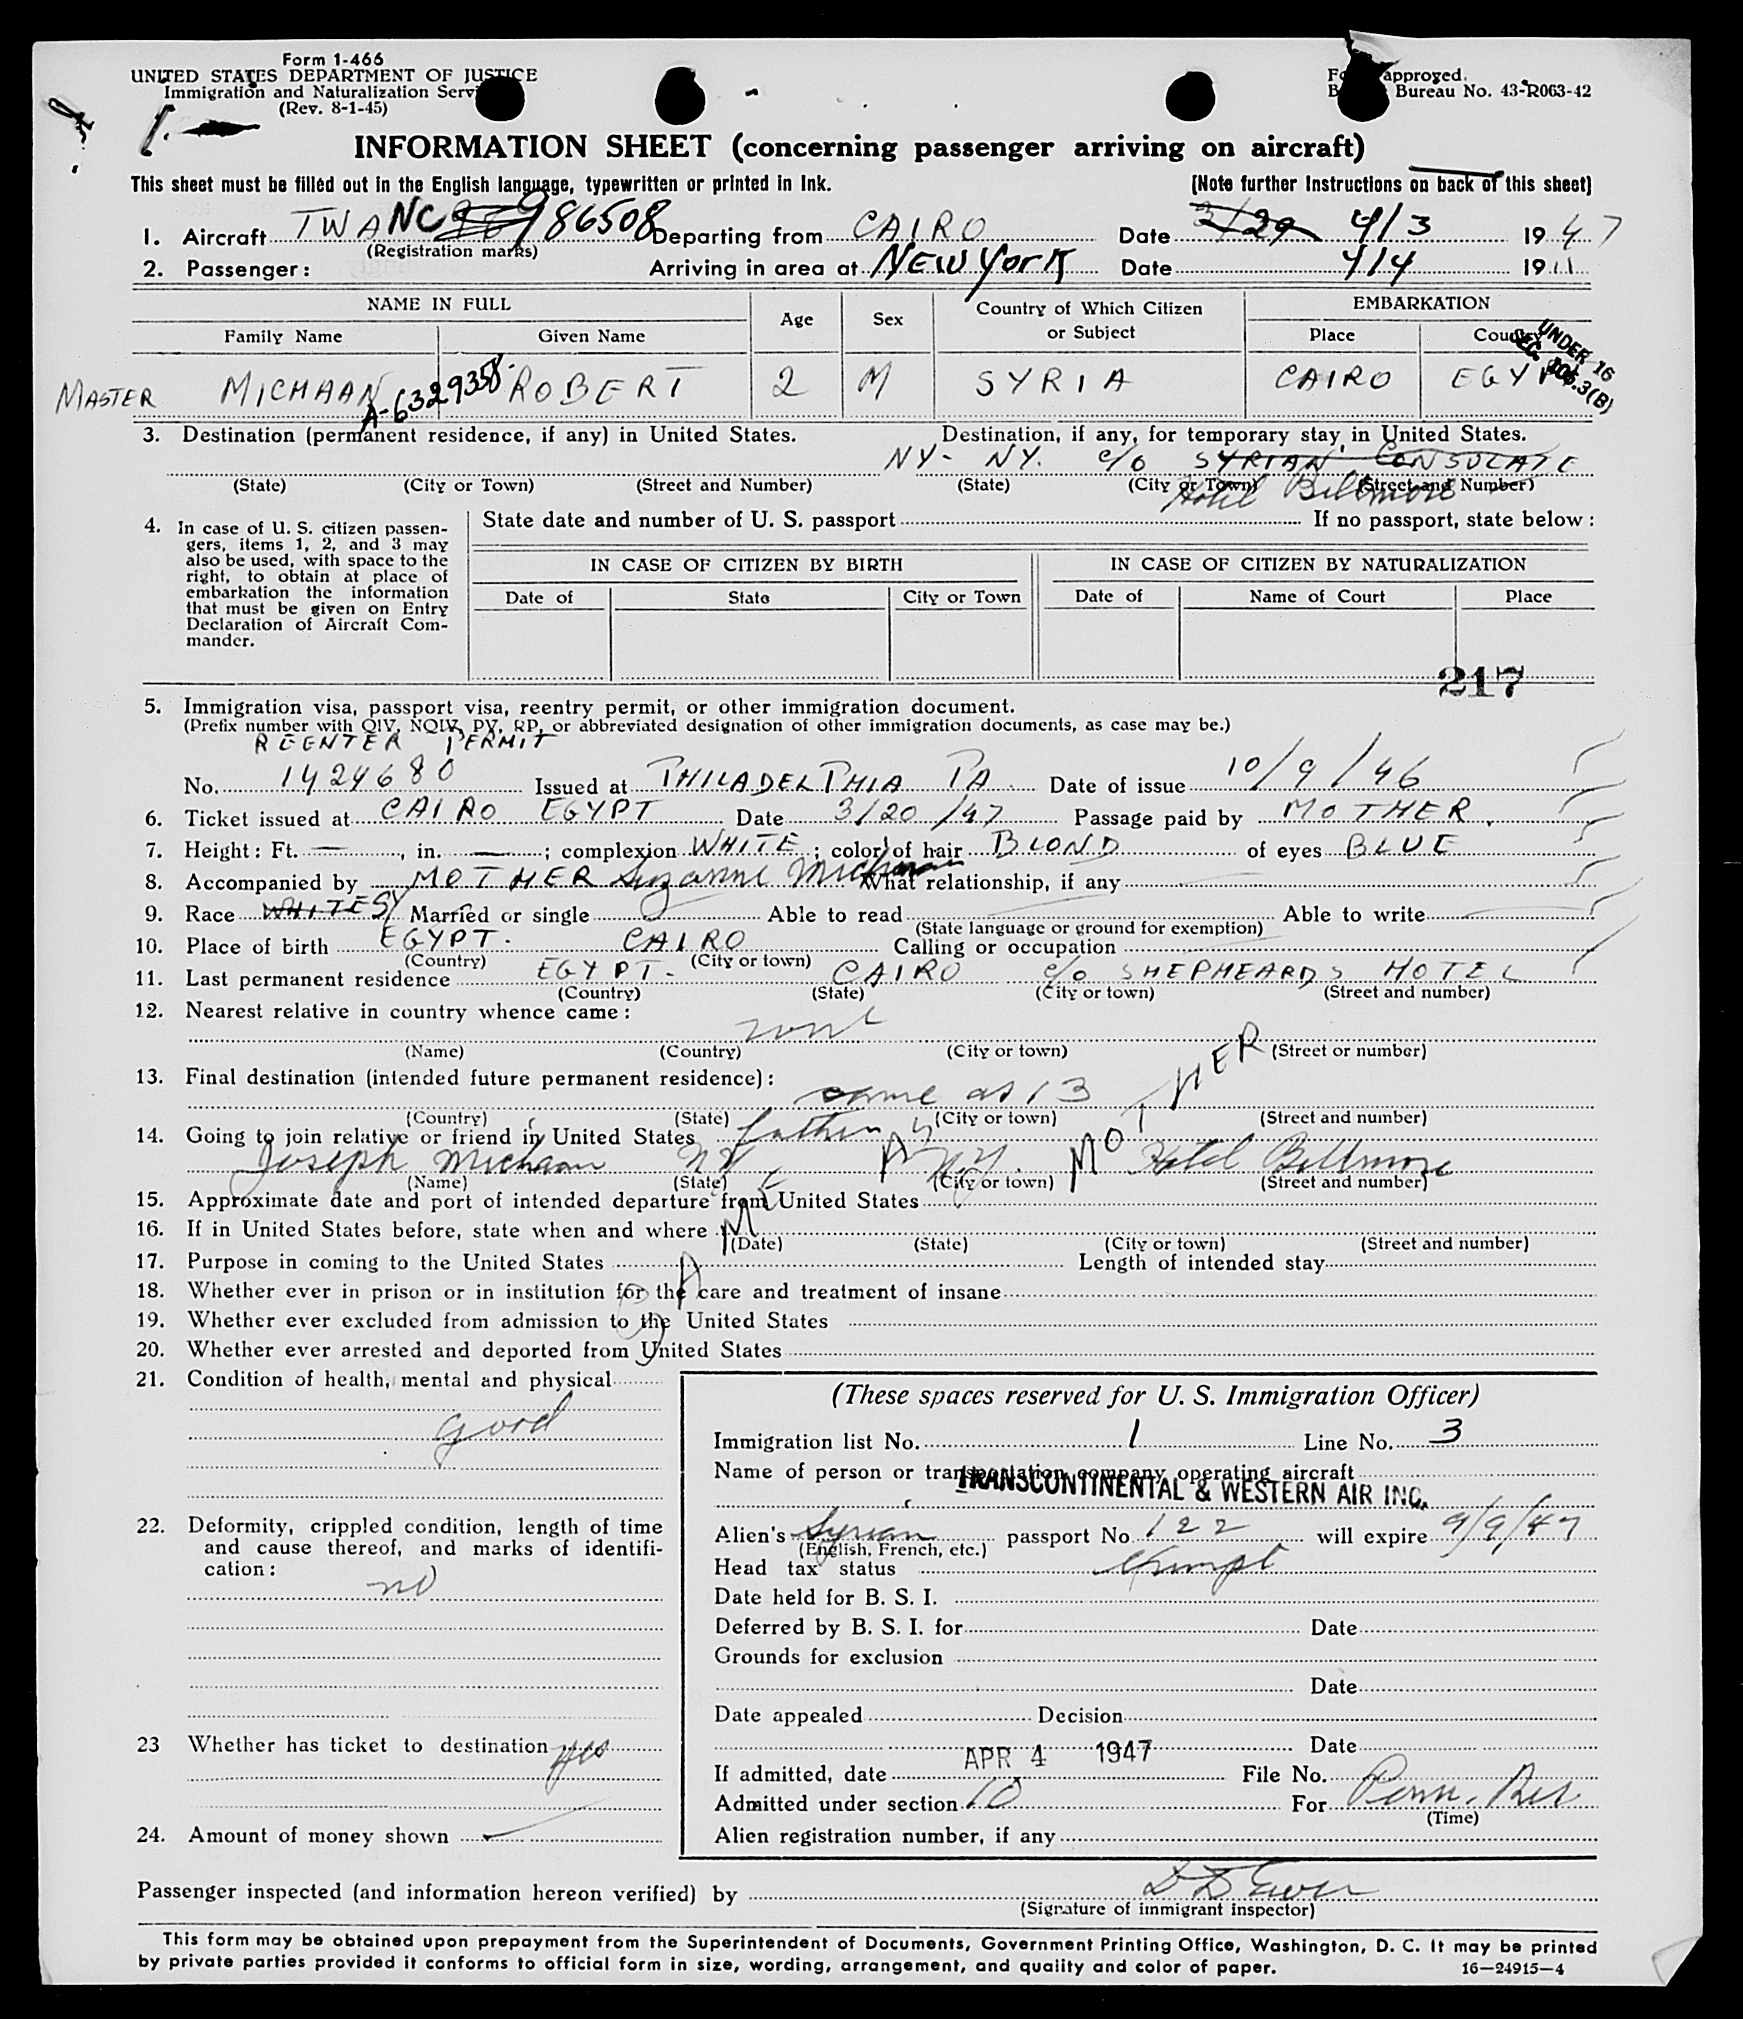 Form 1-466
UNITED STATES DEPARTMENT OF JUSTICE
Immigration and Naturalization Serv
(Rev. 8-1-45)
approved.
Bureau No. 43-R063-42
INFORMATION SHEET (concerning passenger arriving on aircraft)
This sheet must be filled out in the English language, typewritten or printed in ink.
(Note further instructions on back of this sheet)
1. Aircraft TWA NC 86508 Departing from CAIRO Date 3/29 4/3 1947
(Registration marks)
2. Passenger: Arriving in area at NEW YORK Date 4/4 19
NAME IN FULL Age Sex Country of Which Citizen or Subject EMBARKATION
Family Name Given Name Place Country
UNDER 16
SEC. 106.3(B)
MASTER MICHAAN ROBERT 2 M SYRIA CAIRO EGYPT
A-6329358
3. Destination (permanent residence, if any) in United States. Destination, if any, for temporary stay in United States.
NY- NY. c/o SYRIAN CONSULATE
(State) (City or Town) (Street and Number) (State) (City or Town) (Street and Number)
Hotel Biltmore
4. In case of U. S. citizen passen-
gers, items 1, 2, and 3 may
also be used, with space to the
right, to obtain at place of
embarkation the information
that must be given on Entry
Declaration of Aircraft Com-
mander.
State date and number of U. S. passport If no passport, state below:
IN CASE OF CITIZEN BY BIRTH IN CASE OF CITIZEN BY NATURALIZATION
Date of State City or Town Date of Name of Court Place
217
5. Immigration visa, passport visa, reentry permit, or other immigration document.
(Prefix number with QIV, NQIV, PV, RP, or abbreviated designation of other immigration documents, as case may be.)
REENTER PERMIT
No. 1424680 Issued at PHILADELPHIA PA. Date of issue 10/9/46
6. Ticket issued at CAIRO EGYPT Date 3/20/47 Passage paid by MOTHER.
7. Height: Ft. — , in. — ; complexion WHITE ; color of hair BLOND of eyes BLUE
8. Accompanied by MOTHER Suzanne Michaan What relationship, if any
9. Race WHITE SY Married or single Able to read Able to write
(State language or ground for exemption)
10. Place of birth EGYPT. CAIRO Calling or occupation
(Country) (City or town)
11. Last permanent residence EGYPT- CAIRO c/o SHEPHEARDS HOTEL
(Country) (State) (City or town) (Street and number)
12. Nearest relative in country whence came:
none
(Name) (Country) (City or town) (Street or number)
13. Final destination (intended future permanent residence):
same as 13
(Country) (State) (City or town) (Street and number)
14. Going to join relative or friend in United States father
Joseph Michaan NY NY. Hotel Biltmore
(Name) (State) (City or town) (Street and number)
SAME AS MOTHER
15. Approximate date and port of intended departure from United States
16. If in United States before, state when and where
(Date) (State) (City or town) (Street and number)
17. Purpose in coming to the United States Length of intended stay
18. Whether ever in prison or in institution for the care and treatment of insane
19. Whether ever excluded from admission to the United States
20. Whether ever arrested and deported from United States
21. Condition of health, mental and physical
good
22. Deformity, crippled condition, length of time
and cause thereof, and marks of identifi-
cation:
no
23 Whether has ticket to destination yes
24. Amount of money shown
(These spaces reserved for U. S. Immigration Officer)
Immigration list No. 1 Line No. 3
Name of person or transportation company operating aircraft
TRANSCONTINENTAL & WESTERN AIR INC.
Alien's Syrian passport No. 122 will expire 9/9/47
(English, French, etc.)
Head tax status Exempt
Date held for B. S. I.
Deferred by B. S. I. for Date
Grounds for exclusion
Date
Date appealed Decision
Date
If admitted, date APR 4 1947 File No.
Admitted under section 10 For Perm. Res
(Time)
Alien registration number, if any
Passenger inspected (and information hereon verified) by
(Signature of immigrant inspector)
This form may be obtained upon prepayment from the Superintendent of Documents, Government Printing Office, Washington, D. C. It may be printed
by private parties provided it conforms to official form in size, wording, arrangement, and quality and color of paper.
16—24915—4